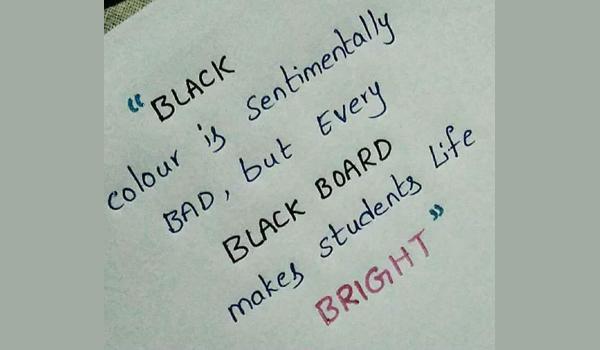 “BLACK
colour is Sentimentally
BAD, but Every
BLACK BOARD
makes students Life
BRIGHT”